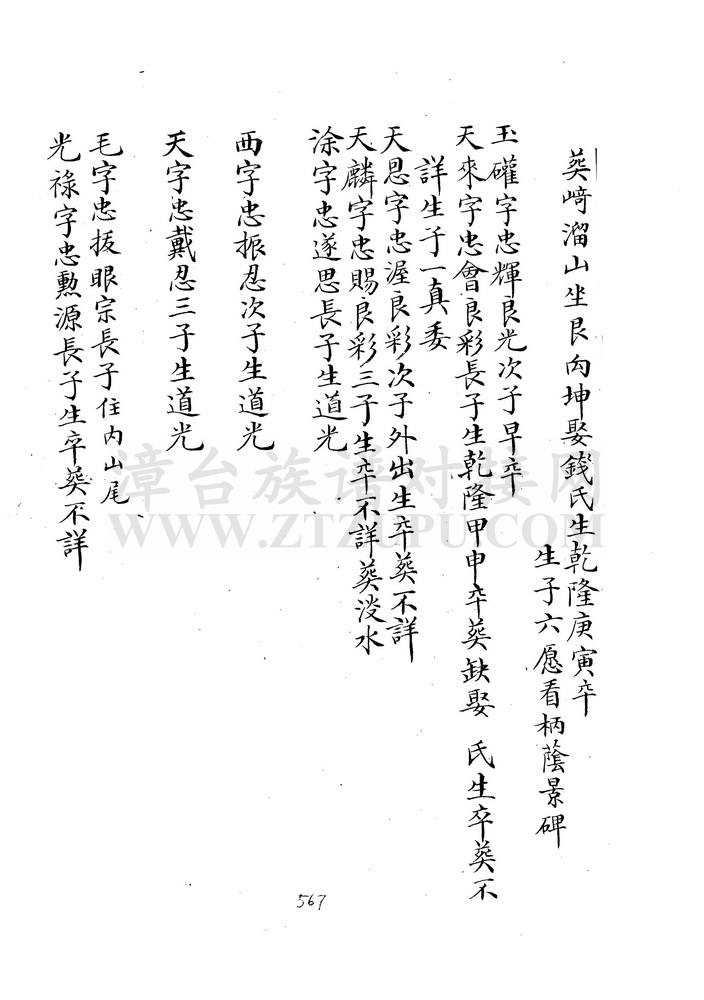 葬﨑溜山坐艮向坤娶錢氏生乾隆庚寅卒
生子六愿看柄蔭景碑
玉礶字忠輝良光次子早卒
天來字忠會良彩長子生乾隆甲申卒葬缺娶 氏生卒葬不
詳生子一真委
天恩字忠渥良彩次子外出生卒葬不詳
天麟字忠賜良彩三子生卒不詳葬淡水
涂字忠遂思長子生道光
西字忠振忍次子生道光
天字忠戴忍三子生道光
毛字忠拔眼宗長子住內山尾
光祿字忠勲源長子生卒葬不詳
漳台族谱对接网
WWW.ZTZUPU.COM
567